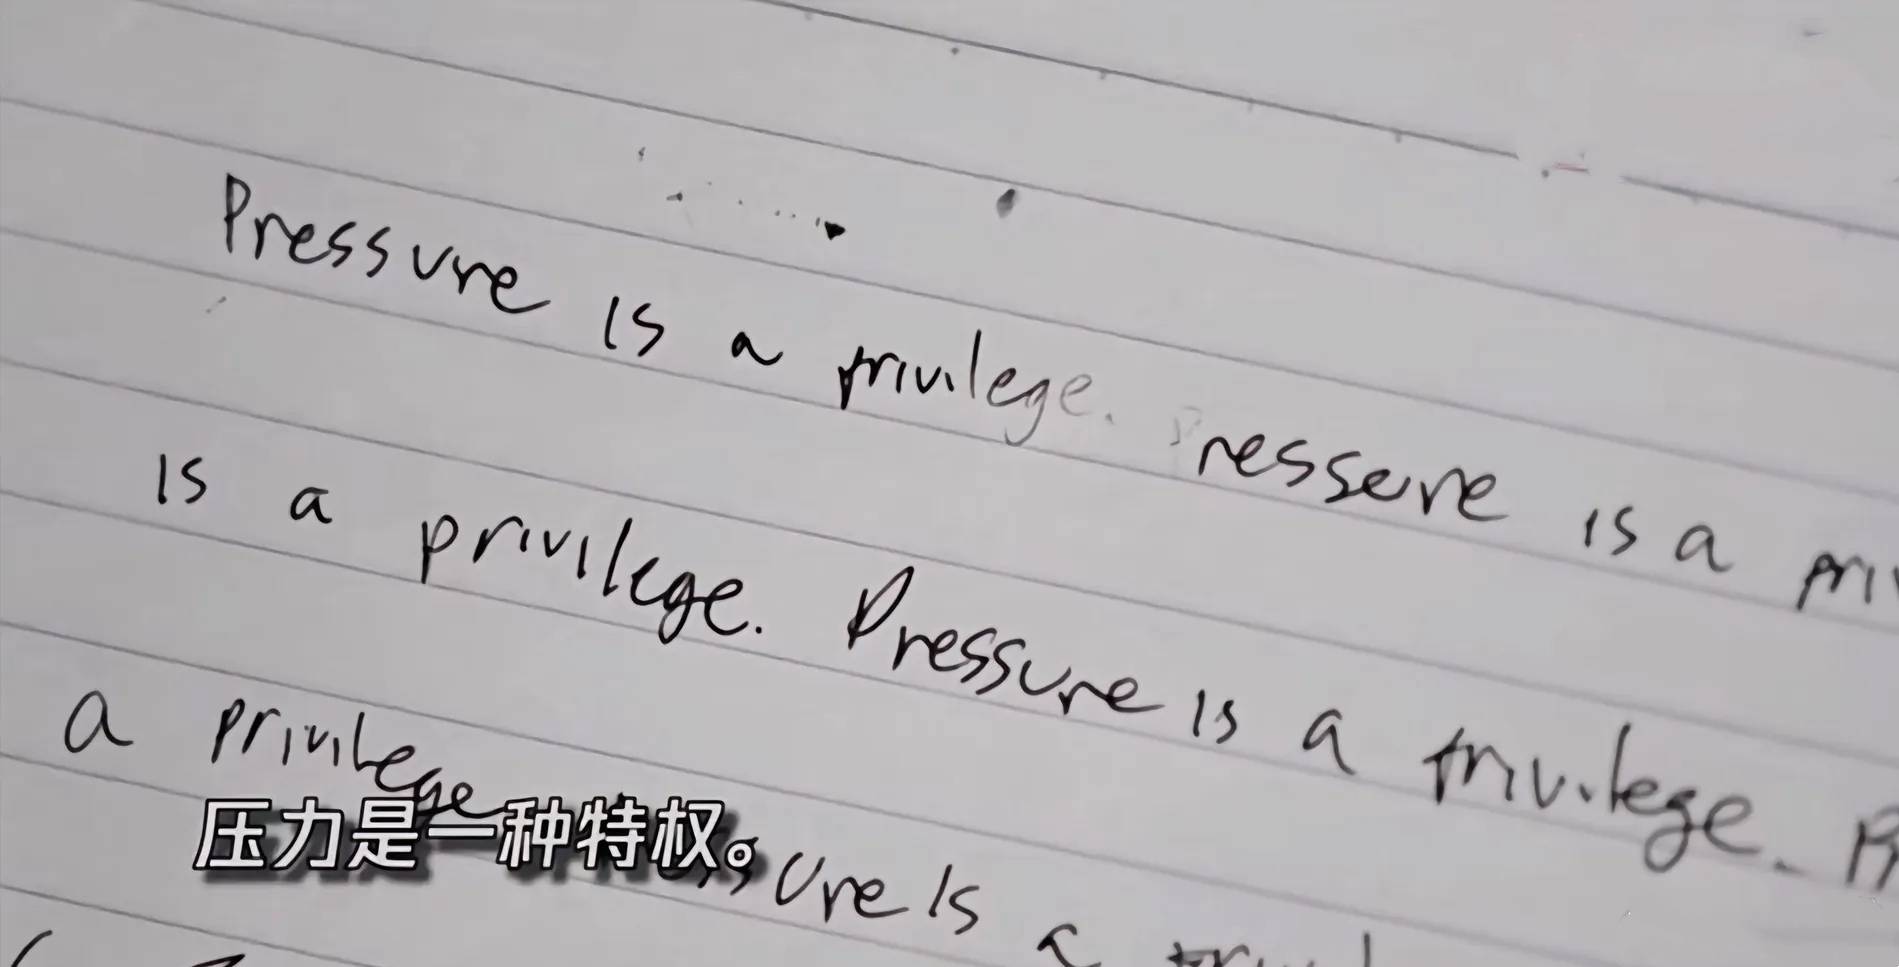 Pressure is a privilege. Pressure is a pri
is a privilege. Pressure is a privilege. Pr
a privilege
压力是一种特权。
ssure is a